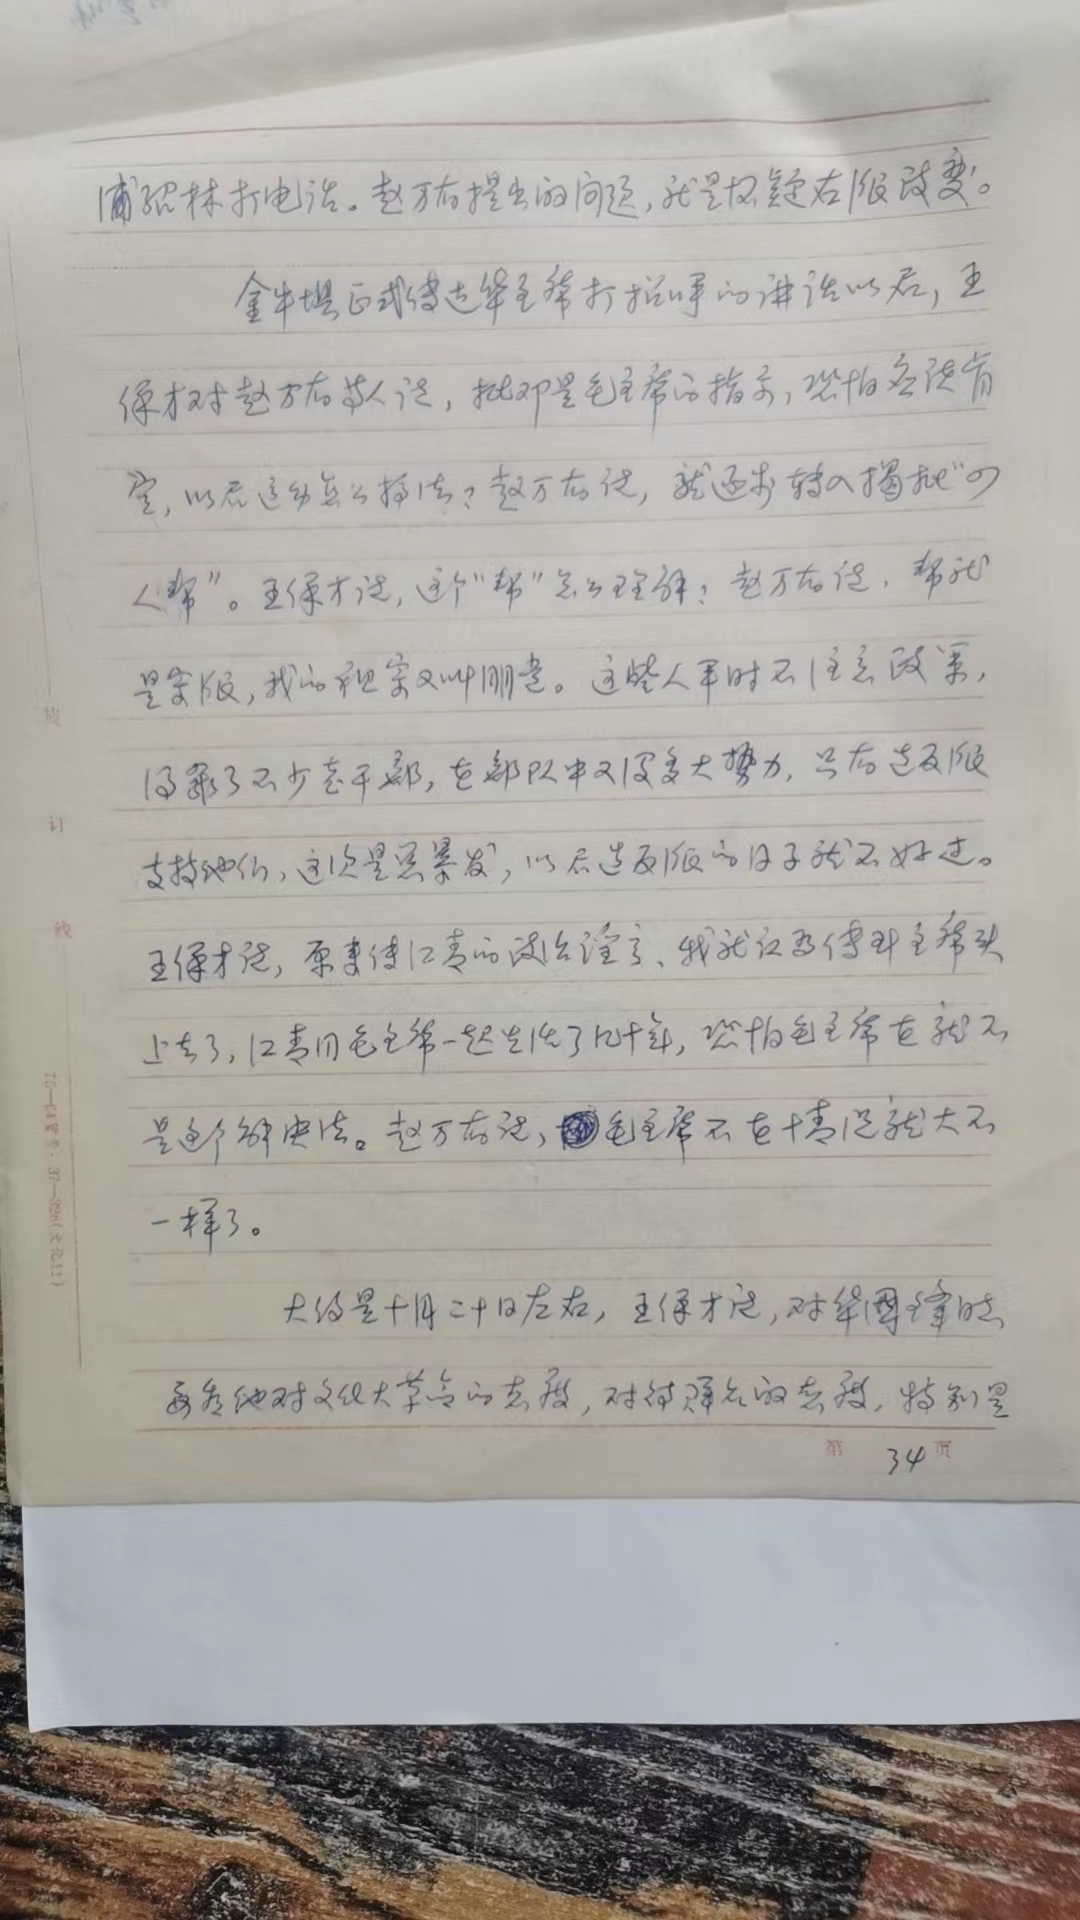 浦韶林打电话。赵万有提出的问题,就是怀疑右派政变。
金牛坝正式传达华主席打招呼的讲话以后,王
保才对赵万有等人说,批邓是毛主席的指示,恐怕应该肯
定,以后运动怎么搞法?赵万有说,就逐步转入揭批“四
人帮”。王保才说,这个“帮”怎么理解?赵万有说,帮就
是宗派,我的理解又叫朋党。这些人平时不注意政策,
得罪了不少老干部,在部队中又没多大势力,只有造反派
支持他们,这次是总暴发,以后造反派的日子就不好过。
王保才说,原来传江青的政治谣言、我就认为传到主席头
上去了,江青同毛主席一起生活了几十年,恐怕毛主席在就不
是这个解决法。赵万有说,毛主席不在情况就大不
一样了。
大约是十月二十日左右,王保才说,对华国锋同志
要看他对文化大革命的态度,对待群众的态度,特别是
第 34 页
装
订
线